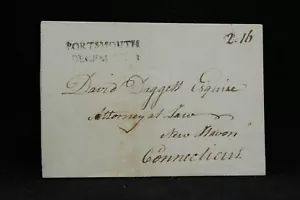 PORTSMOUTH
2.16
David Daggett Esquire
Attorney at Law
New Haven
Connecticut